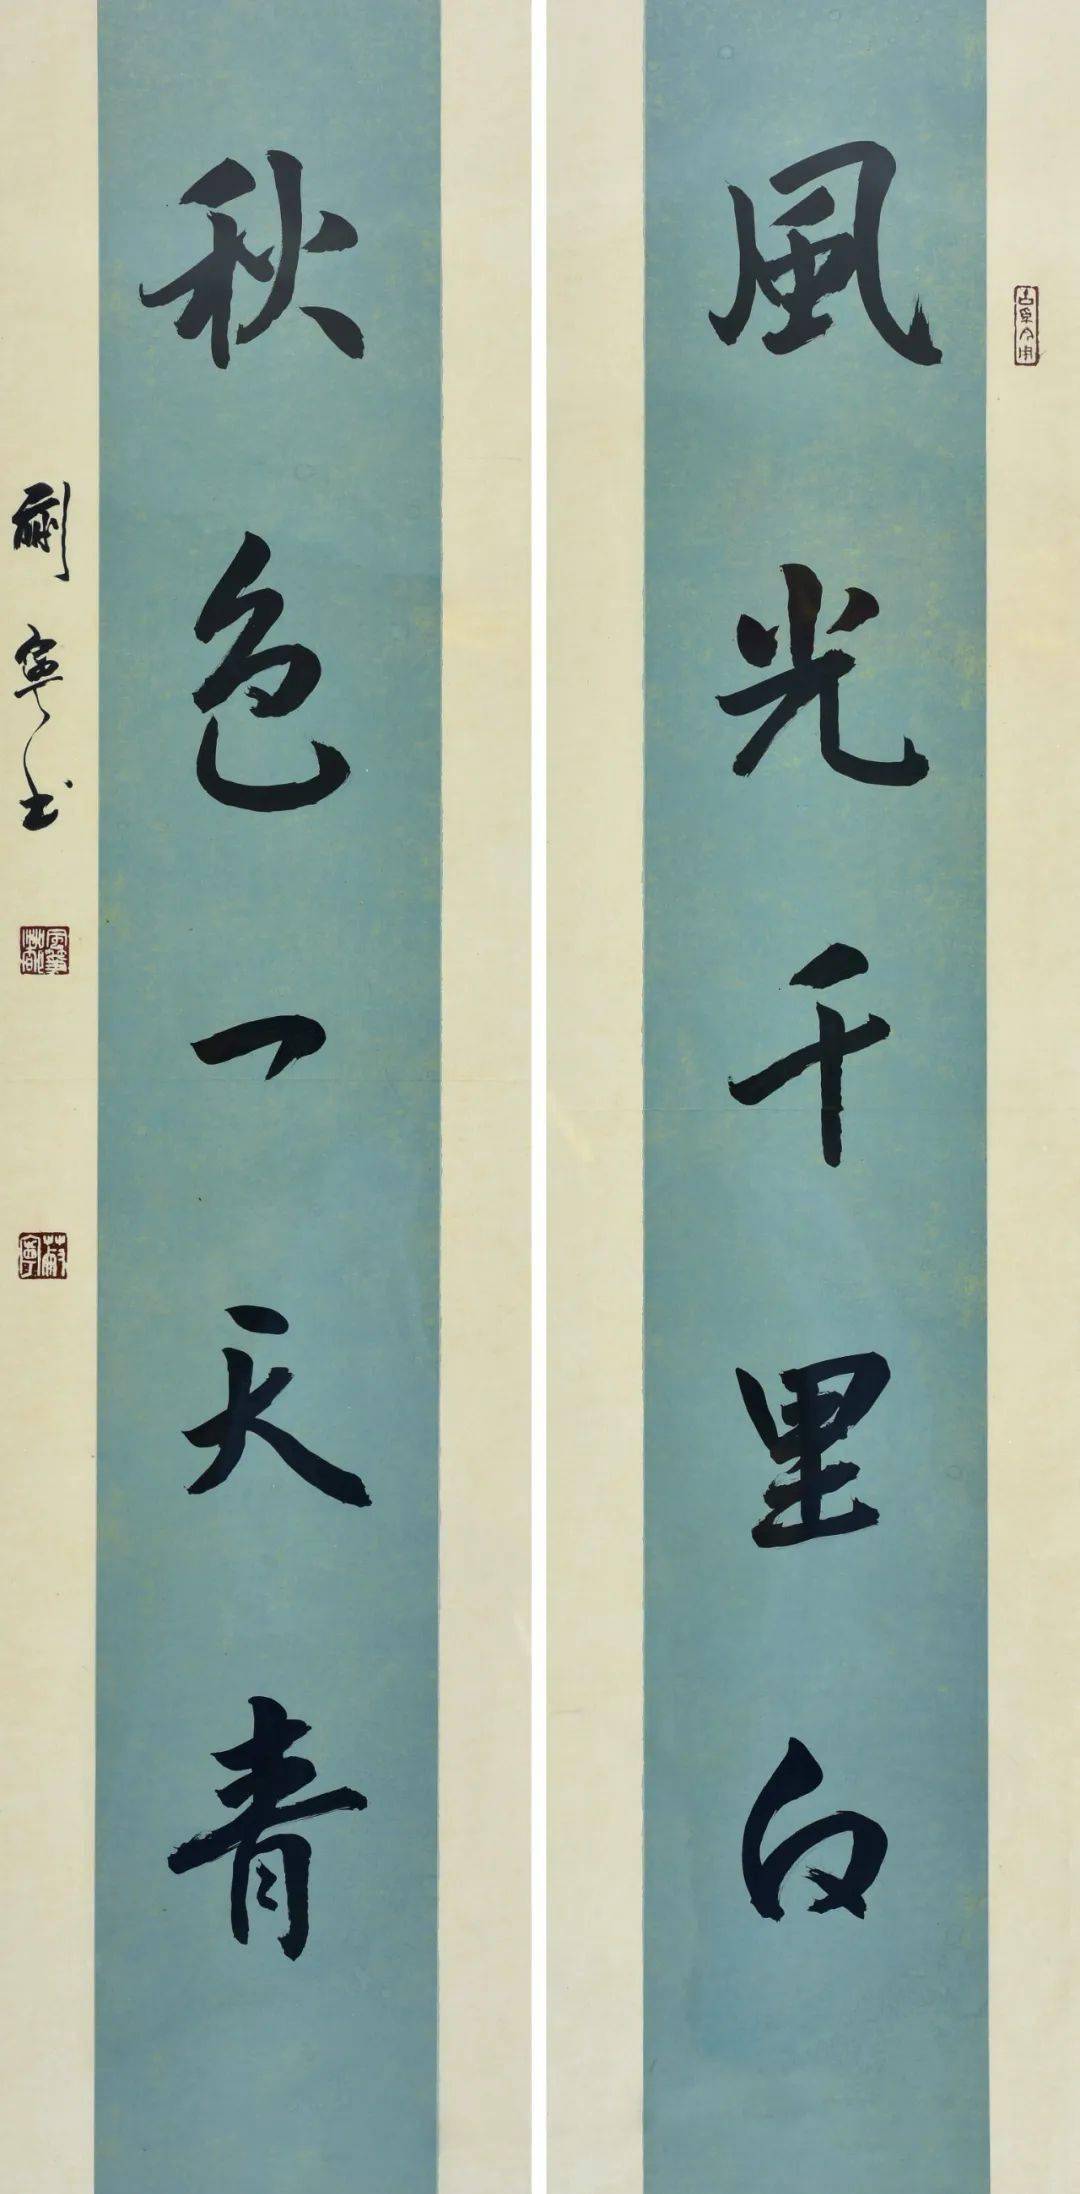 風光千里白
秋色一天青
蒯寧書